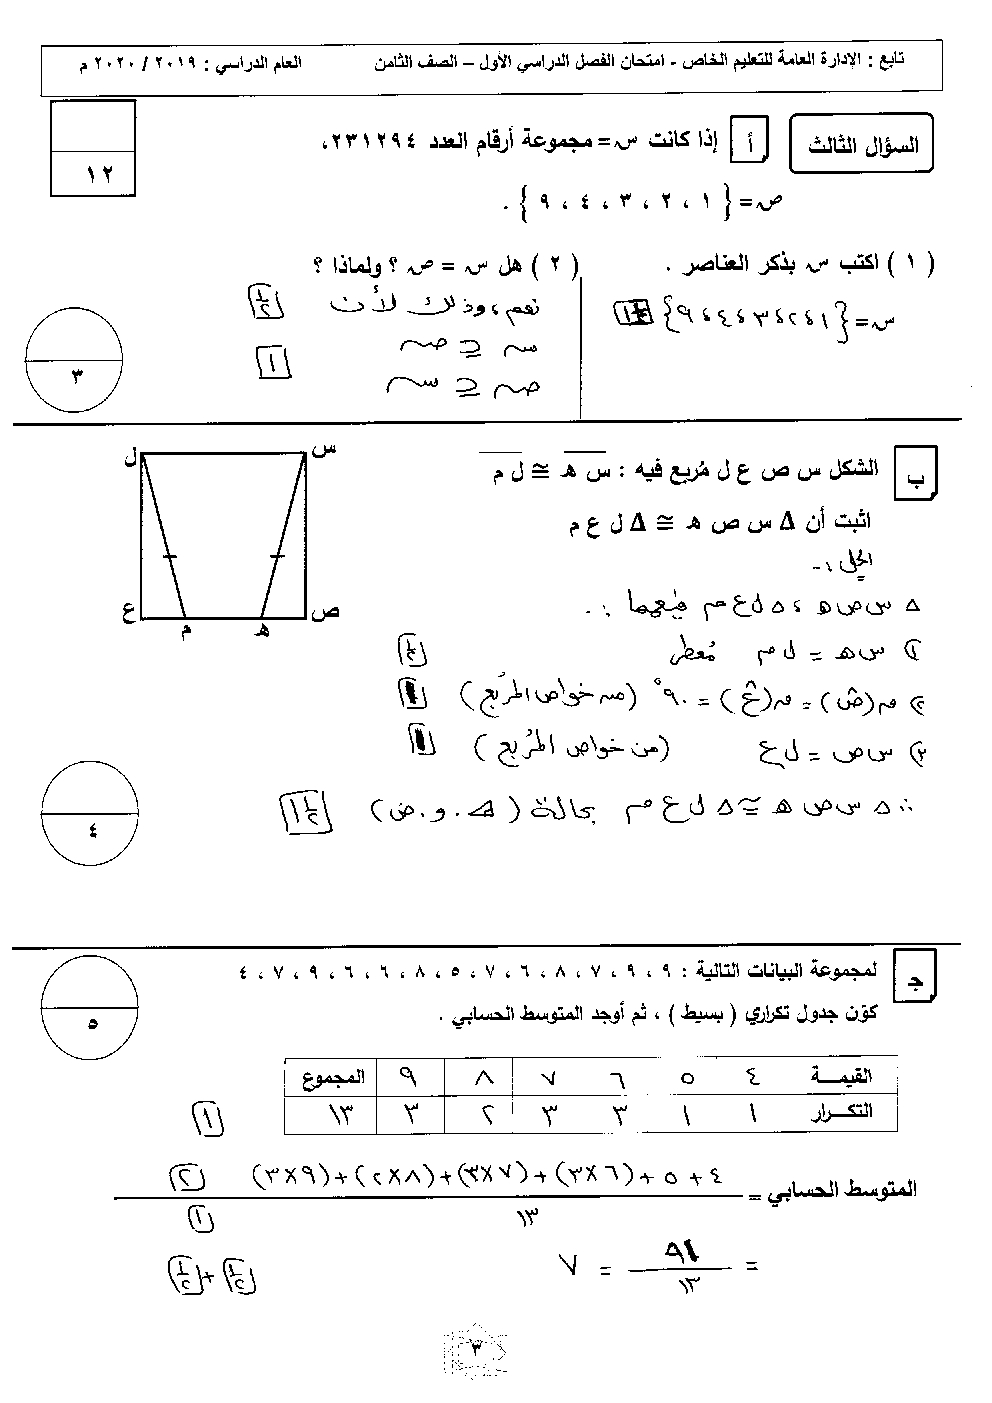 تابع : الإدارة العامة للتعليم الخاص - امتحان الفصل الدراسي الأول – الصف الثامن العام الدراسي : ٢٠١٩ / ٢٠٢٠ م
١٢
السؤال الثالث أ إذا كانت س = مجموعة أرقام العدد ٢٣١٢٩٤،
ص = { ١ ، ٢ ، ٣ ، ٤ ، ٩ } .
( ١ ) اكتب س بذكر العناصر .
س = { ١ ، ٢ ، ٣ ، ٤ ، ٩ }
( ٢ ) هل س = ص ؟ ولماذا ؟
نعم ، وذلك لأن ١/٢
س ⊆ ص
ص ⊆ س ١
٣
ب الشكل س ص ع ل مُربع فيه : س هـ ≅ ل م
اثبت أن ∆ س ص هـ ≅ ∆ ل ع م
س ل
ص ع
هـ م
الحل :-
∆ س ص هـ ، ∆ ل ع م فيهما :.
١) س هـ = ل م مُعطى ١/٢
٢) م(ص̂) = م(ع̂) = ٩٠° (من خواص المربع)
٣) س ص = ل ع (من خواص المُربع)
∴ ∆ س ص هـ ≅ ∆ ل ع م بحالة (هـ . و . ض) ١ ١/٢
٤
ج لمجموعة البيانات التالية : ٩ ، ٩ ، ٧ ، ٨ ، ٦ ، ٧ ، ٥ ، ٨ ، ٦ ، ٦ ، ٩ ، ٧ ، ٤
كوّن جدول تكراري ( بسيط ) ، ثم أوجد المتوسط الحسابي .
٥
القيمـــة ٤ ٥ ٦ ٧ ٨ ٩ المجموع
التكـــرار ١ ١ ٣ ٣ ٢ ٣ ١٣
١
المتوسط الحسابي = ٤ + ٥ + (٦×٣) + (٧×٣) + (٨×٢) + (٩×٣) ٢
١٣ ١
= ٩١/١٣ = ٧ ١/٢ + ١/٢
٣